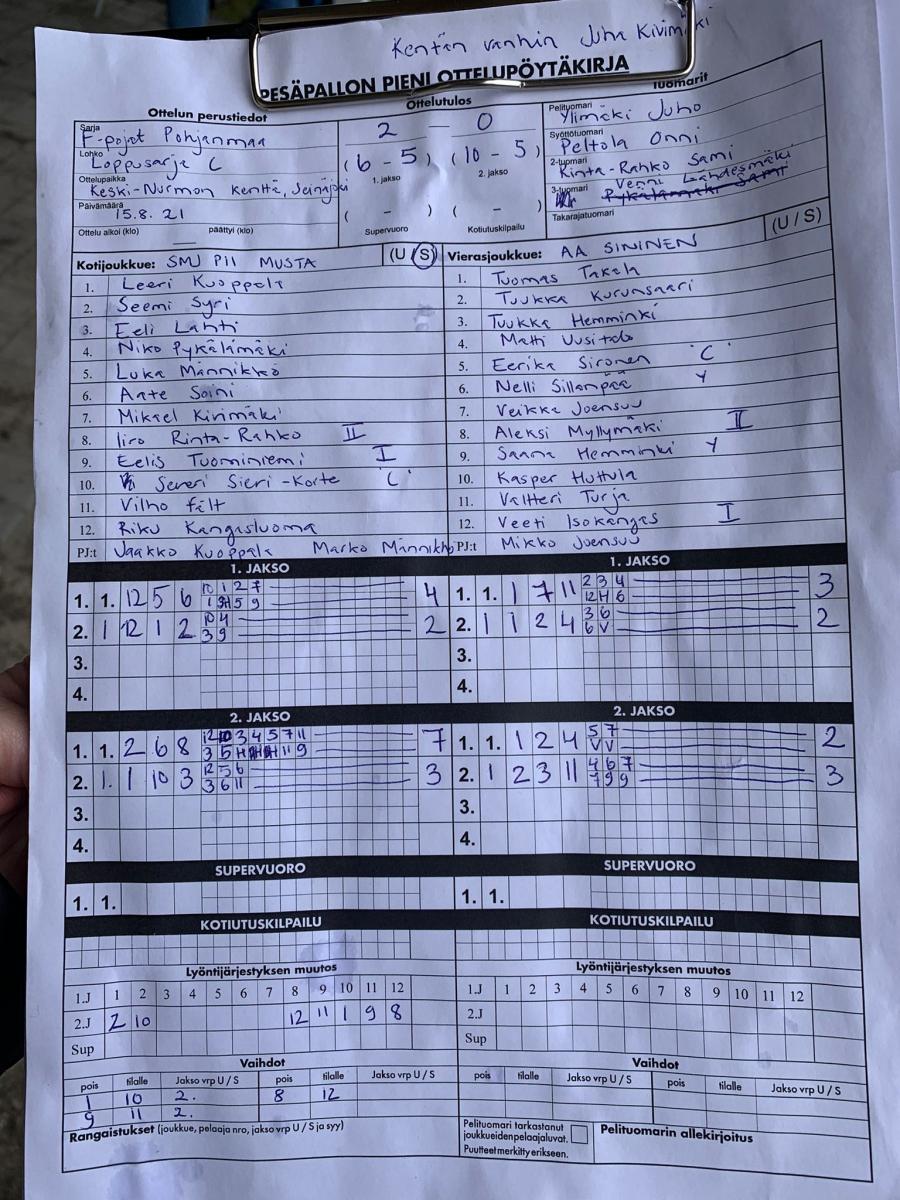 Kentän vanhin Juha Kivimäki
PESÄPALLON PIENI OTTELUPÖYTÄKIRJA
Ottelun perustiedot
Sarja
F-pojat Pohjanmaa
Lohko
Loppusarja C
Ottelupaikka
Keski-Nurmon kenttä, Seinäjoki
Päivämäärä
15.8.21
Ottelu alkoi (klo) — päättyi (klo)
Ottelutulos
2 – 0
(6 - 5) (10 - 5)
1. jakso 2. jakso
( - ) ( - )
Supervuoro Kotiutuskilpailu
Tuomarit
Pelituomari
Ylimäki Juho
Syöttötuomari
Peltola Onni
2-tuomari
Rinta-Rahko Sami
3-tuomari
Venni Lähdesmäki
Pykälämäki Sami
Takarajatuomari
Kotijoukkue: SMJ PII MUSTA (U/S)
1. Leeri Kuoppala
2. Seemi Syri
3. Eeli Lahti
4. Niko Pykälämäki
5. Luka Männikkö
6. Aate Soini
7. Mikael Kivimäki
8. Iiro Rinta-Rahko II
9. Eelis Tuominiemi I
10. Severi Sieri-Korte C
11. Vilho Fält
12. Riku Kangasluoma
PJ:t Jaakko Kuoppala Marko Männikkö
Vierasjoukkue: AA SININEN (U/S)
1. Tuomas Takala
2. Tuukka Kurunsaari
3. Tuukka Hemminki
4. Matti Uusitalo
5. Eerika Sironen C
6. Nelli Sillanpää Y
7. Veikka Joensuu
8. Aleksi Myllymäki II
9. Saana Hemminki Y
10. Kasper Huttula
11. Valtteri Turja
12. Veeti Isokangas I
PJ:t Mikko Joensuu
1. JAKSO
1. 1. 12 5 6 10 1 2 7 4
1 9H 5 9
2. 1 12 1 2 10 4 2
3 9
3.
4.
1. JAKSO
1. 1. 1 7 11 2 3 4 3
12 H 6
2. 1 1 2 4 3 6 2
6 V
3.
4.
2. JAKSO
1. 1. 2 6 8 12 10 3 4 5 7 11 7
3 5 H H H 11 9
2. 1. 1 10 3 12 5 6 3
3 6 11
3.
4.
2. JAKSO
1. 1. 1 2 4 5 7 2
V V
2. 1 2 3 11 4 6 7 3
7 9 9
3.
4.
SUPERVUORO
1. 1.
SUPERVUORO
1. 1.
KOTIUTUSKILPAILU
KOTIUTUSKILPAILU
Lyöntijärjestyksen muutos
1.J 1 2 3 4 5 6 7 8 9 10 11 12
2.J 2 10 12 11 1 9 8
Sup
Lyöntijärjestyksen muutos
1.J 1 2 3 4 5 6 7 8 9 10 11 12
2.J
Sup
Vaihdot
pois tilalle Jakso vrp U / S pois tilalle Jakso vrp U / S
1 10 2. 8 12
9 11 2.
Vaihdot
pois tilalle Jakso vrp U / S pois tilalle Jakso vrp U / S
Rangaistukset (joukkue, pelaaja nro, jakso vrp U / S ja syy)
Pelituomari tarkastanut
joukkueiden pelaajaluvat.
Puutteet merkitty erikseen.
Pelituomarin allekirjoitus